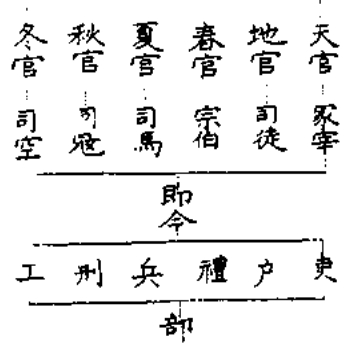 天官冢宰
地官司徒
春官宗伯
夏官司馬
秋官司寇
冬官司空
即今
吏户禮兵刑工
部